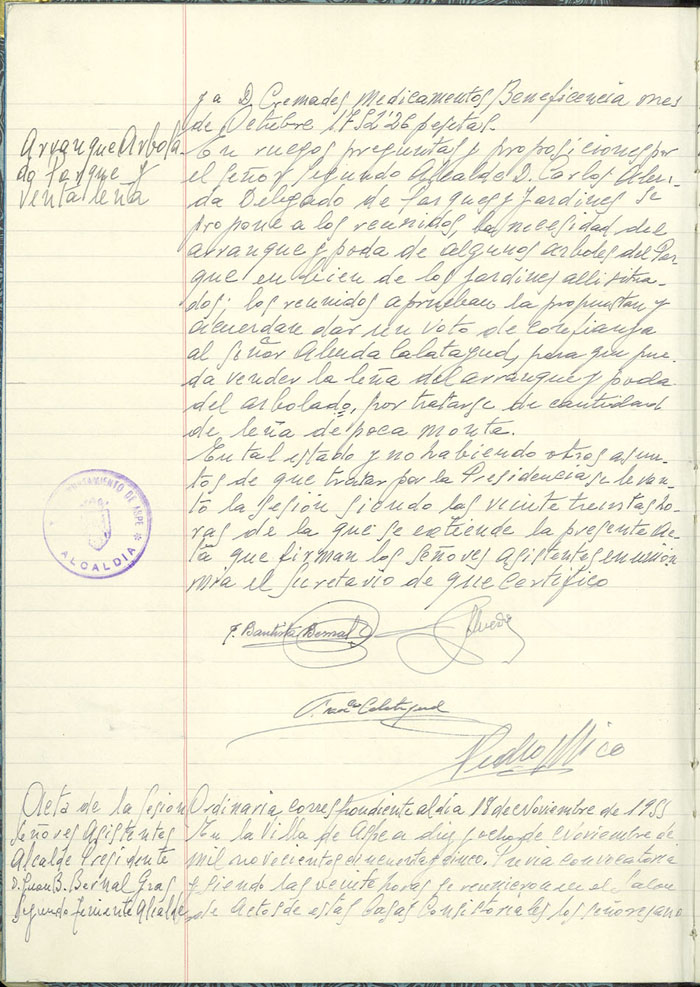 y a D. Cremades Medicamentos Beneficencia mes
de Octubre 1752'26 pesetas.
Arranque Arbola-
do Parque y
venta leña
En ruegos preguntas y proposiciones por
el Señor Segundo Alcalde D. Carlos Alen-
da Delegado de Parques y Jardines se
propone a los reunidos, la necesidad del
arranque y poda de algunos arboles del Par
que en bien de los jardines alli situa-
dos; los reunidos aprueban la propuesta y
acuerdan dar un voto de confianza
al Señor Alenda Calatayud, para que pue-
da vender la leña del arranque y poda
del arbolado, por tratarse de cantidad
de leña de poca monta.
En tal estado y no habiendo otros asun-
tos de que tratar por la Presidencia se levan
tó la sesión siendo las veinte treinta ho-
ras de la que se extiende la presente Ac-
ta que firman los Señores Asistentes en unión
mia el Secretario de que certifico
AYUNTAMIENTO DE ASPE
ALCALDIA
J. Bautista Bernal
Alenda
Calatayud
Pedro Mico
Acta de la Sesion Ordinaria, correspondiente al dia 18 de Noviembre de 1955
Señores Asistentes
Alcalde Presidente
D. Juan B. Bernal Gras
Segundo Teniente Alcalde
En la Villa de Aspe a diez y ocho de Noviembre de
mil novecientos cincuenta y cinco. Previa convocatoria
y siendo las veinte horas se reunieron en el Salon
de Actos de estas Casas Consistoriales los señores